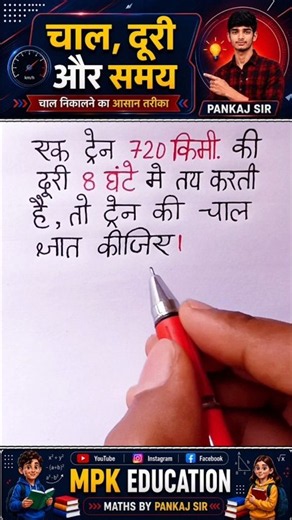 चाल, दूरी
और समय
चाल निकालने का आसान तरीका
km/h
PANKAJ SIR
एक ट्रेन 720 किमी. की
दूरी 8 घंटे मे तय करती
है, तो ट्रेन की चाल
ज्ञात कीजिए।
YouTube
Instagram
Facebook
MPK EDUCATION
MATHS BY PANKAJ SIR